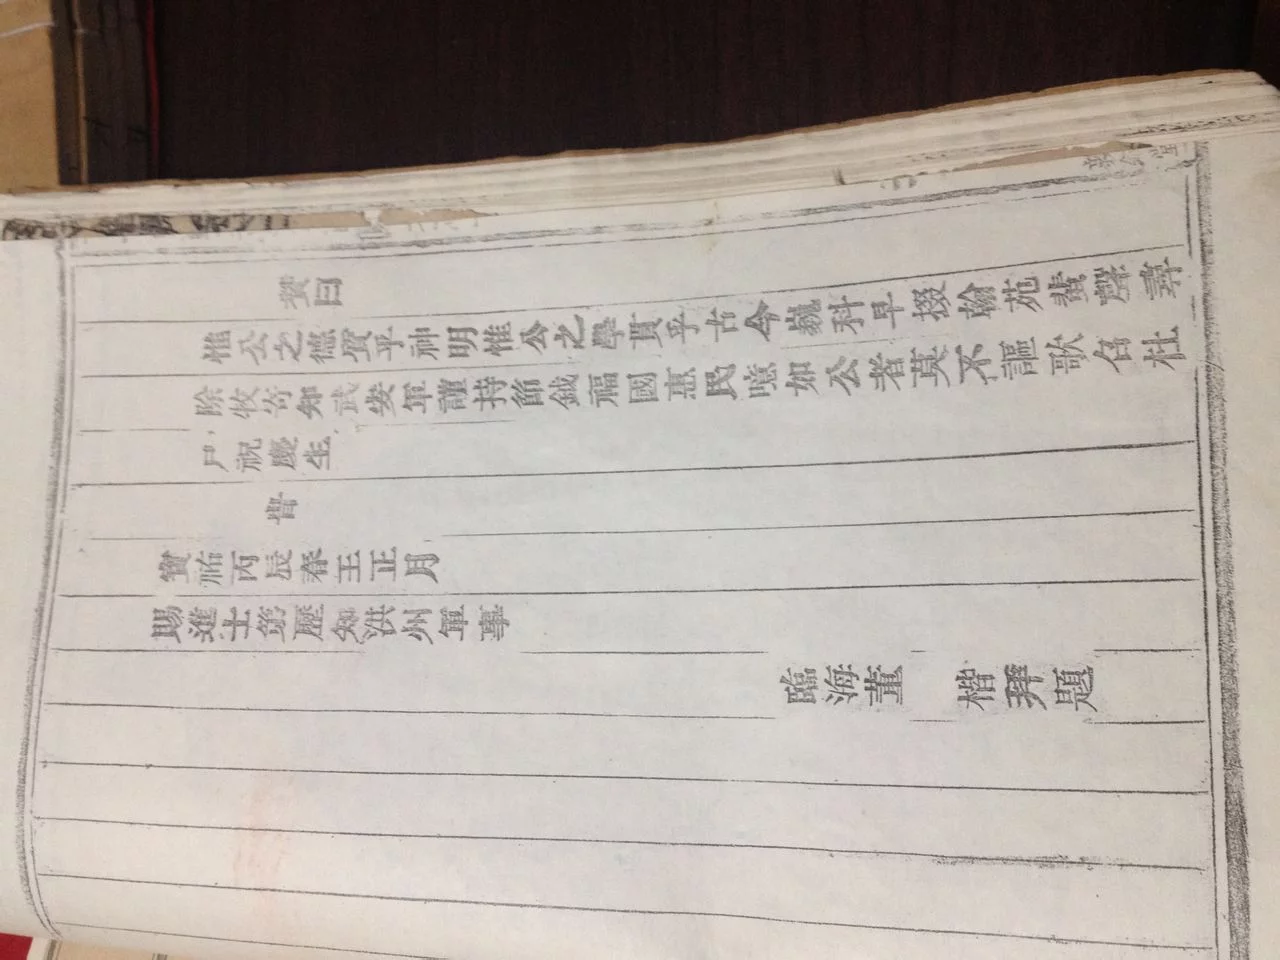 贊曰
惟公之德質乎神明惟公之學貫乎古今巍科早掇翰苑蜚聲尋
除牧寄知武安軍謹持節鉞福國惠民噫如公者莫不謳歌召杜
尸祝慶生
旹
寶祐丙辰春王正月
賜進士第歷知洪州軍事
臨海董 楷拜題
堂